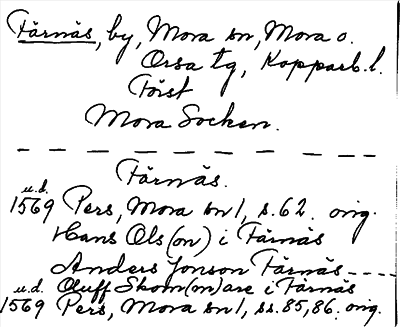 Färnäs, by, Mora sn, Mora o.
Orsa tg, Kopparb. l.
Först
Mora Socken.
Färnäs.
u.d.
1569 Pers, Mora sn 1, s. 62. orig.
Hans Ols(on) i Färnäs
Anders Jonson Färnäs ----
u.d. Oluff Skom(on)are i Färnäs
1569 Pers, Mora sn 1, ss. 85, 86. orig.